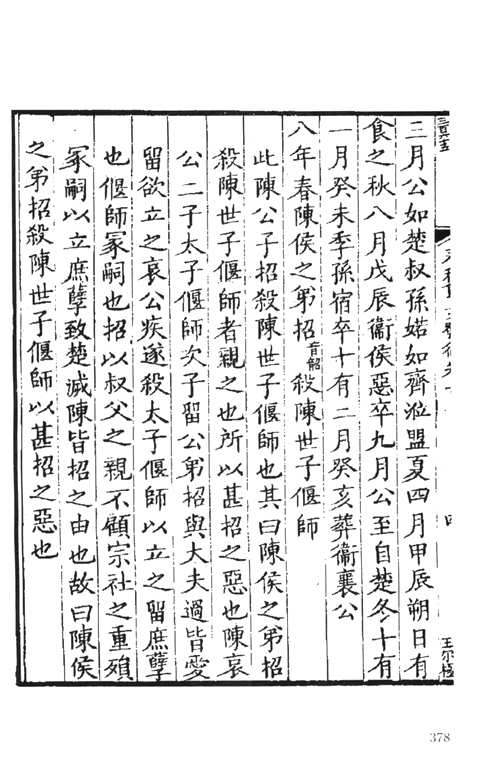 三月公如楚叔孫婼如齊涖盟夏四月甲辰朔日有
食之秋八月戊辰衞侯惡卒九月公至自楚冬十有
一月癸未季孫宿卒十有二月癸亥葬衞襄公
八年春陳侯之弟招音韶殺陳世子偃師
此陳公子招殺陳世子偃師也其曰陳侯之弟招
殺陳世子偃師者親之也所以甚招之惡也陳哀
公二子太子偃師次子留公弟招與大夫過皆愛
留欲立之哀公疾遂殺太子偃師以立之留庶孽
也偃師冢嗣也招以叔父之親不顧宗社之重殞
冢嗣以立庶孽致楚滅陳皆招之由也故曰陳侯
之弟招殺陳世子偃師以甚招之惡也
378